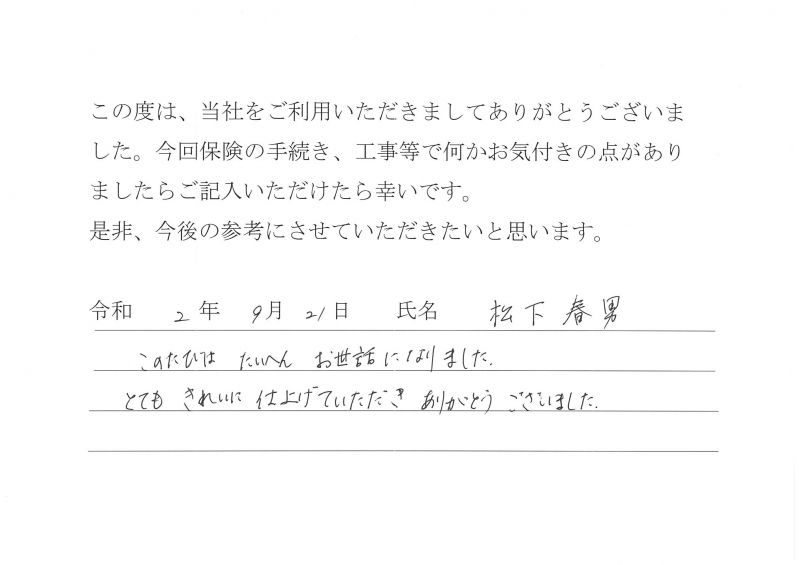 この度は、当社をご利用いただきましてありがとうございま
した。今回保険の手続き、工事等で何かお気付きの点があり
ましたらご記入いただけたら幸いです。
是非、今後の参考にさせていただきたいと思います。
令和 2年 9月 21日 氏名 松下 春男
このたびは たいへん お世話になりました。
とても きれいに 仕上げていただき ありがとう ございました。